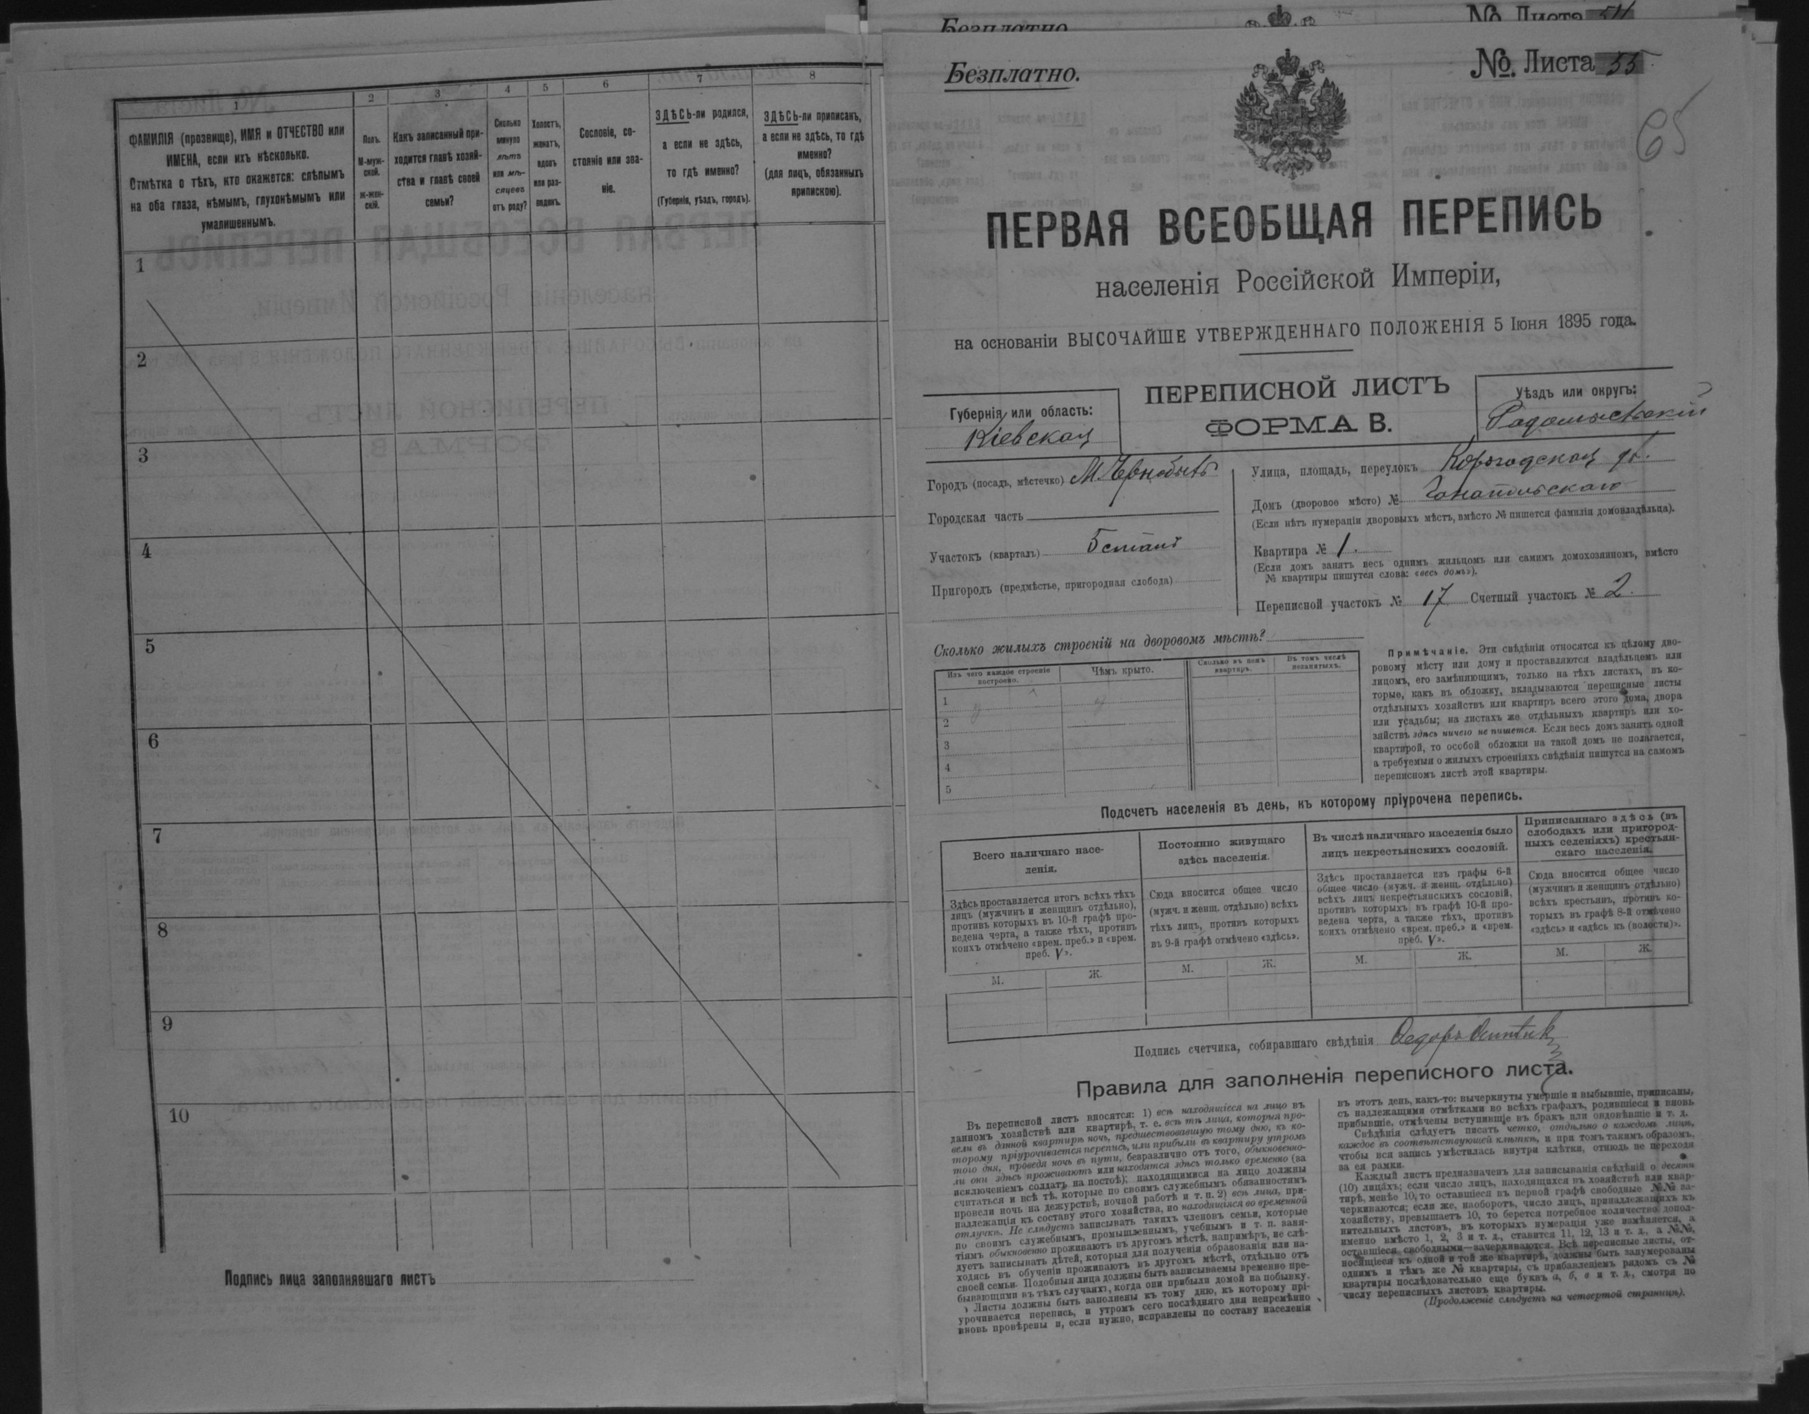 1
2
3
4
5
6
7
8
ФАМИЛІЯ (прозвище), ИМЯ и ОТЧЕСТВО или
ИМЕНА, если ихъ нѣсколько.
Отмѣтка о тѣхъ, кто окажется: слѣпымъ
на оба глаза, нѣмымъ, глухонѣмымъ или
умалишеннымъ.
Полъ.
М-муж-
ской.
Ж-жен-
скій.
Какъ записанный при-
ходится главѣ хозяй-
ства и главѣ своей
семьи?
Сколько
минуло
лѣтъ
или мѣ-
сяцевъ
отъ роду?
Холостъ,
женатъ,
вдовъ
или раз-
веденъ.
Сословіе, со-
стояніе или зва-
ніе.
ЗДѢСЬ-ли родился,
а если не здѣсь,
то гдѣ именно?
(Губернія, уѣздъ, городъ).
ЗДѢСЬ-ли приписанъ,
а если не здѣсь, то гдѣ
именно?
(для лицъ, обязанныхъ
припискою).
1
2
3
4
5
6
7
8
9
10
Подпись лица заполнявшаго листъ
Безплатно.
№ Листа 54
Безплатно.
№. Листа 55
65
ПЕРВАЯ ВСЕОБЩАЯ ПЕРЕПИСЬ
населенія Россійской Имперіи,
на основаніи ВЫСОЧАЙШЕ УТВЕРЖДЕННАГО ПОЛОЖЕНІЯ 5 Іюня 1895 года.
Губернія или область:
Кіевская
ПЕРЕПИСНОЙ ЛИСТЪ
ФОРМА В.
Уѣздъ или округъ:
Радомысльскій
Городъ (посадъ, мѣстечко) М. Чернобыль
Городская часть
Участокъ (кварталъ) 5 станъ
Пригородъ (предмѣстье, пригородная слобода)
Улица, площадь, переулокъ Корогодская
Домъ (дворовое мѣсто) №
(Если нѣтъ нумераціи дворовыхъ мѣстъ, вмѣсто № пишется фамилія домовладѣльца).
Квартира № 1.
(Если домъ занятъ весь однимъ жильцомъ или самимъ домохозяиномъ, вмѣсто
№ квартиры пишутся слова: «весь домъ»).
Переписной участокъ № 17 Счетный участокъ № 2.
Сколько жилыхъ строеній на дворовомъ мѣстѣ?
Изъ чего каждое строеніе
построено.
Чѣмъ крыто.
Сколько въ немъ
квартиръ.
Въ томъ числѣ
незанятыхъ.
1
2
3
4
5
Примѣчаніе. Эти свѣдѣнія относятся къ цѣлому дво-
ровому мѣсту или дому и проставляются владѣльцемъ или
лицомъ, его замѣняющимъ, только на тѣхъ листахъ, въ ко-
торые, какъ въ обложку, вкладываются переписные листы
отдѣльныхъ хозяйствъ или квартиръ всего этого дома, двора
или усадьбы; на листахъ же отдѣльныхъ квартиръ или хо-
зяйствъ здѣсь ничего не пишется. Если весь домъ занятъ одной
квартирой, то особой обложки на такой домъ не полагается,
а требуемыя о жилыхъ строеніяхъ свѣдѣнія пишутся на самомъ
переписномъ листѣ этой квартиры.
Подсчетъ населенія въ день, къ которому пріурочена перепись.
Всего наличнаго насе-
ленія.
Здѣсь проставляется итогъ всѣхъ тѣхъ
лицъ (мужчинъ и женщинъ отдѣльно),
противъ которыхъ въ 10-й графѣ про-
ведена черта, а также тѣхъ, противъ
коихъ отмѣчено «врем. преб.» и «врем.
преб. V».
М.
Ж.
Постоянно живущаго
здѣсь населенія.
Сюда вносится общее число
(мужч. и женщ. отдѣльно) всѣхъ
тѣхъ лицъ, противъ которыхъ
въ 9-й графѣ отмѣчено «здѣсь».
М.
Ж.
Въ числѣ наличнаго населенія было
лицъ некрестьянскихъ сословій.
Здѣсь проставляется изъ графы 6-й
общее число (мужч. и женщ. отдѣльно)
всѣхъ лицъ некрестьянскихъ сословій,
противъ которыхъ въ графѣ 10-й про-
ведена черта, а также тѣхъ, противъ
коихъ отмѣчено «врем. преб.» и «врем.
преб. V».
М.
Ж.
Приписаннаго здѣсь (въ
слободахъ или пригород-
ныхъ селеніяхъ) крестьян-
скаго населенія.
Сюда вносится общее число
(мужчинъ и женщинъ отдѣльно)
всѣхъ крестьянъ, противъ ко-
торыхъ въ графѣ 8-й отмѣчено
«здѣсь» и «здѣсь въ (волости)».
М.
Ж.
Подпись счетчика, собиравшаго свѣдѣнія Федоръ
Правила для заполненія переписного листа.
Въ переписной листъ вносятся: 1) всѣ находящіеся на лицо въ
данномъ хозяйствѣ или квартирѣ, т. е. всѣ тѣ лица, которыя про-
вели въ данной квартирѣ ночь, предшествовавшую тому дню, къ ко-
торому пріурочивается перепись, или прибыли въ квартиру утромъ
того дня, проведя ночь въ пути, безразлично отъ того, обыкновенно-
ли они здѣсь проживаютъ или находятся здѣсь только временно (за
исключеніемъ солдатъ на постоѣ); находящимися на лицо должны
считаться и всѣ тѣ, которые по своимъ служебнымъ обязанностямъ
провели ночь на дежурствѣ, ночной работѣ и т. п. 2) всѣ лица, при-
надлежащія къ составу этого хозяйства, но находящіяся во временной
отлучкѣ. Не слѣдуетъ записывать такихъ членовъ семьи, которые
по своимъ служебнымъ, промышленнымъ, учебнымъ и т. п. заня-
тіямъ обыкновенно проживаютъ въ другомъ мѣстѣ, напримѣръ, не слѣ-
дуетъ записывать дѣтей, которыя для полученія образованія или на-
ходясь въ обученіи проживаютъ въ другомъ мѣстѣ, отдѣльно отъ
своей семьи. Подобныя лица должны быть записываемы временно пре-
бывающими въ тѣхъ случаяхъ, когда они прибыли домой на побывку.
Листы должны быть заполнены къ тому дню, къ которому прі-
урочивается перепись, и утромъ сего послѣдняго дня непремѣнно
вновь провѣрены и, если нужно, исправлены по составу населенія
въ этотъ день, какъ-то: вычеркнуты умершіе и выбывшіе, приписаны,
съ надлежащими отмѣтками во всѣхъ графахъ, родившіеся и вновь
прибывшіе, отмѣчены вступившіе въ бракъ или овдовѣвшіе и т. д.
Свѣдѣнія слѣдуетъ писать четко, отдѣльно о каждомъ лицѣ,
каждое въ соотвѣтствующей клѣткѣ, и при томъ такимъ образомъ,
чтобы вся запись умѣстилась внутри клѣтки, отнюдь не переходя
за ея рамки.
Каждый листъ предназначенъ для записыванія свѣдѣній о десяти
(10) лицахъ; если число лицъ, находящихся въ хозяйствѣ или квар-
тирѣ, менѣе 10, то оставшіеся въ первой графѣ свободные №№ за-
черкиваются; если же, наоборотъ, число лицъ, принадлежащихъ къ
хозяйству, превышаетъ 10, то берется потребное количество допол-
нительныхъ листовъ, въ которыхъ нумерація уже измѣняется, а
именно вмѣсто 1, 2, 3 и т. д., ставится 11, 12, 13 и т. д., а №№,
оставшіеся свободными—зачеркиваются. Всѣ переписные листы, от-
носящіеся къ одной и той же квартирѣ, должны быть занумерованы
однимъ и тѣмъ же № квартиры, съ прибавленіемъ рядомъ съ №
квартиры послѣдовательно еще буквъ а, б, в и т. д., смотря по
числу переписныхъ листовъ квартиры.
(Продолженіе слѣдуетъ на четвертой страницѣ).